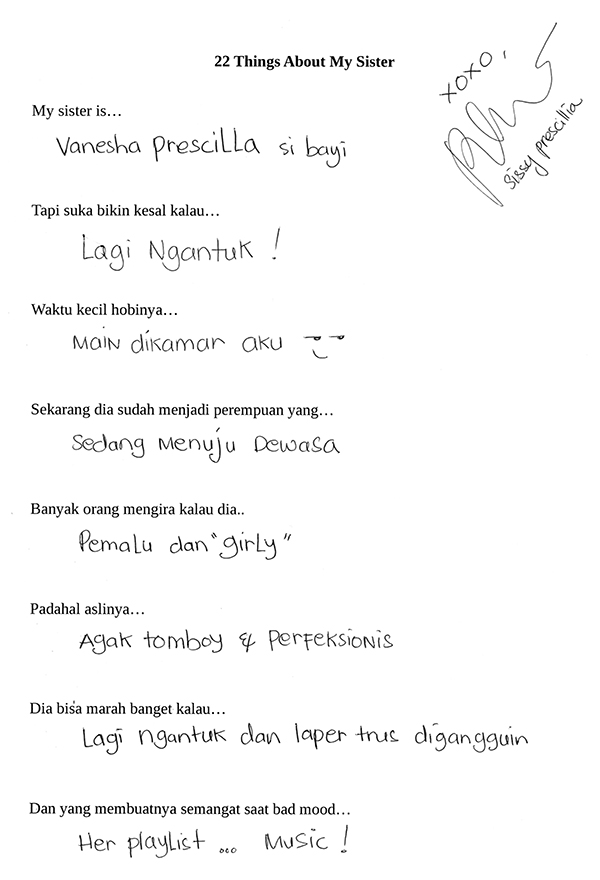 22 Things About My Sister
xoxo,
sissy prescillia
My sister is…
Vanesha prescilla si bayi
Tapi suka bikin kesal kalau…
Lagi Ngantuk !
Waktu kecil hobinya…
Main dikamar aku
Sekarang dia sudah menjadi perempuan yang…
Sedang Menuju Dewasa
Banyak orang mengira kalau dia..
Pemalu dan "girly"
Padahal aslinya…
Agak tomboy & Perfeksionis
Dia bisa marah banget kalau…
Lagi ngantuk dan laper trus digangguin
Dan yang membuatnya semangat saat bad mood…
Her playlist ... Music !